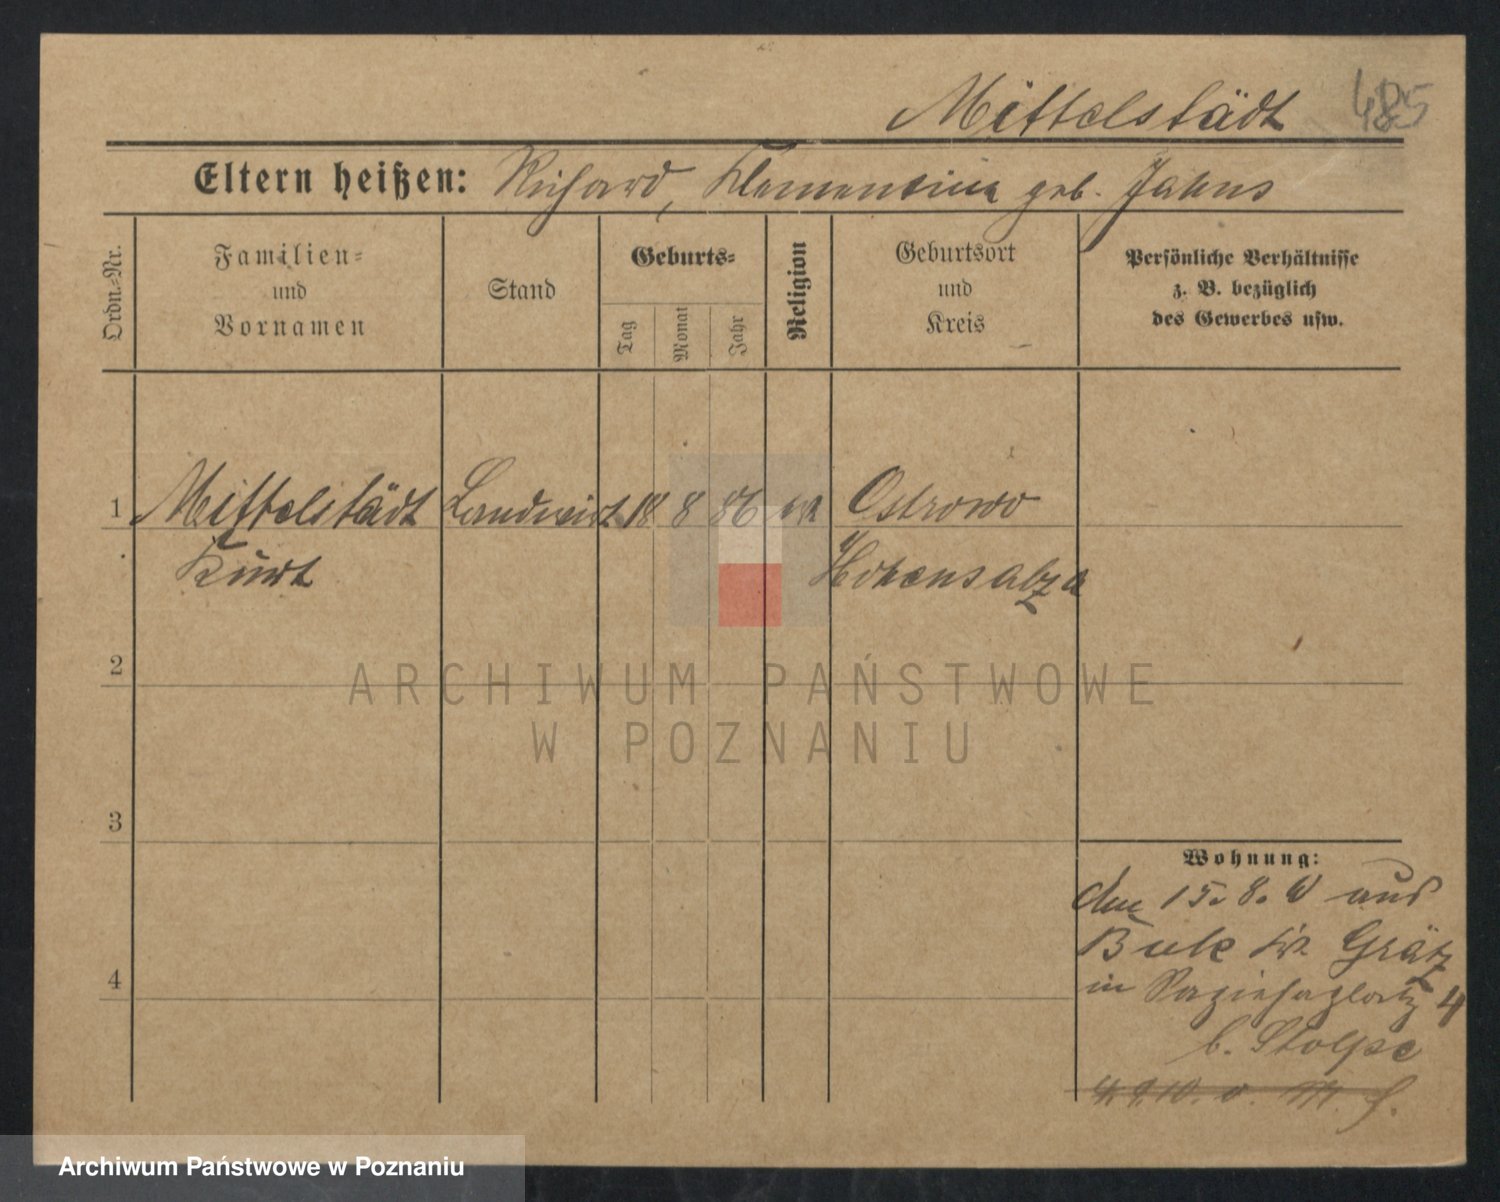 Mittelstädt 485
Eltern heißen: Richard, Klementine geb. Jahns
Ordn.-Nr.
Familien-
und
Vornamen
Stand
Geburts-
Tag
Monat
Jahr
Religion
Geburtsort
und
Kreis
Persönliche Verhältnisse
z. B. bezüglich
des Gewerbes usw.
1 Mittelstädt Landwirt 18 8 86 Ostrowo
Kurt Hohensalza
2
ARCHIWUM PAŃSTWOWE
W POZNANIU
3
Wohnung:
15. 8. aus
Buk Kr. Grätz
4
in 4
b. Stolpe
4.9.10. v.
Archiwum Państwowe w Poznaniu